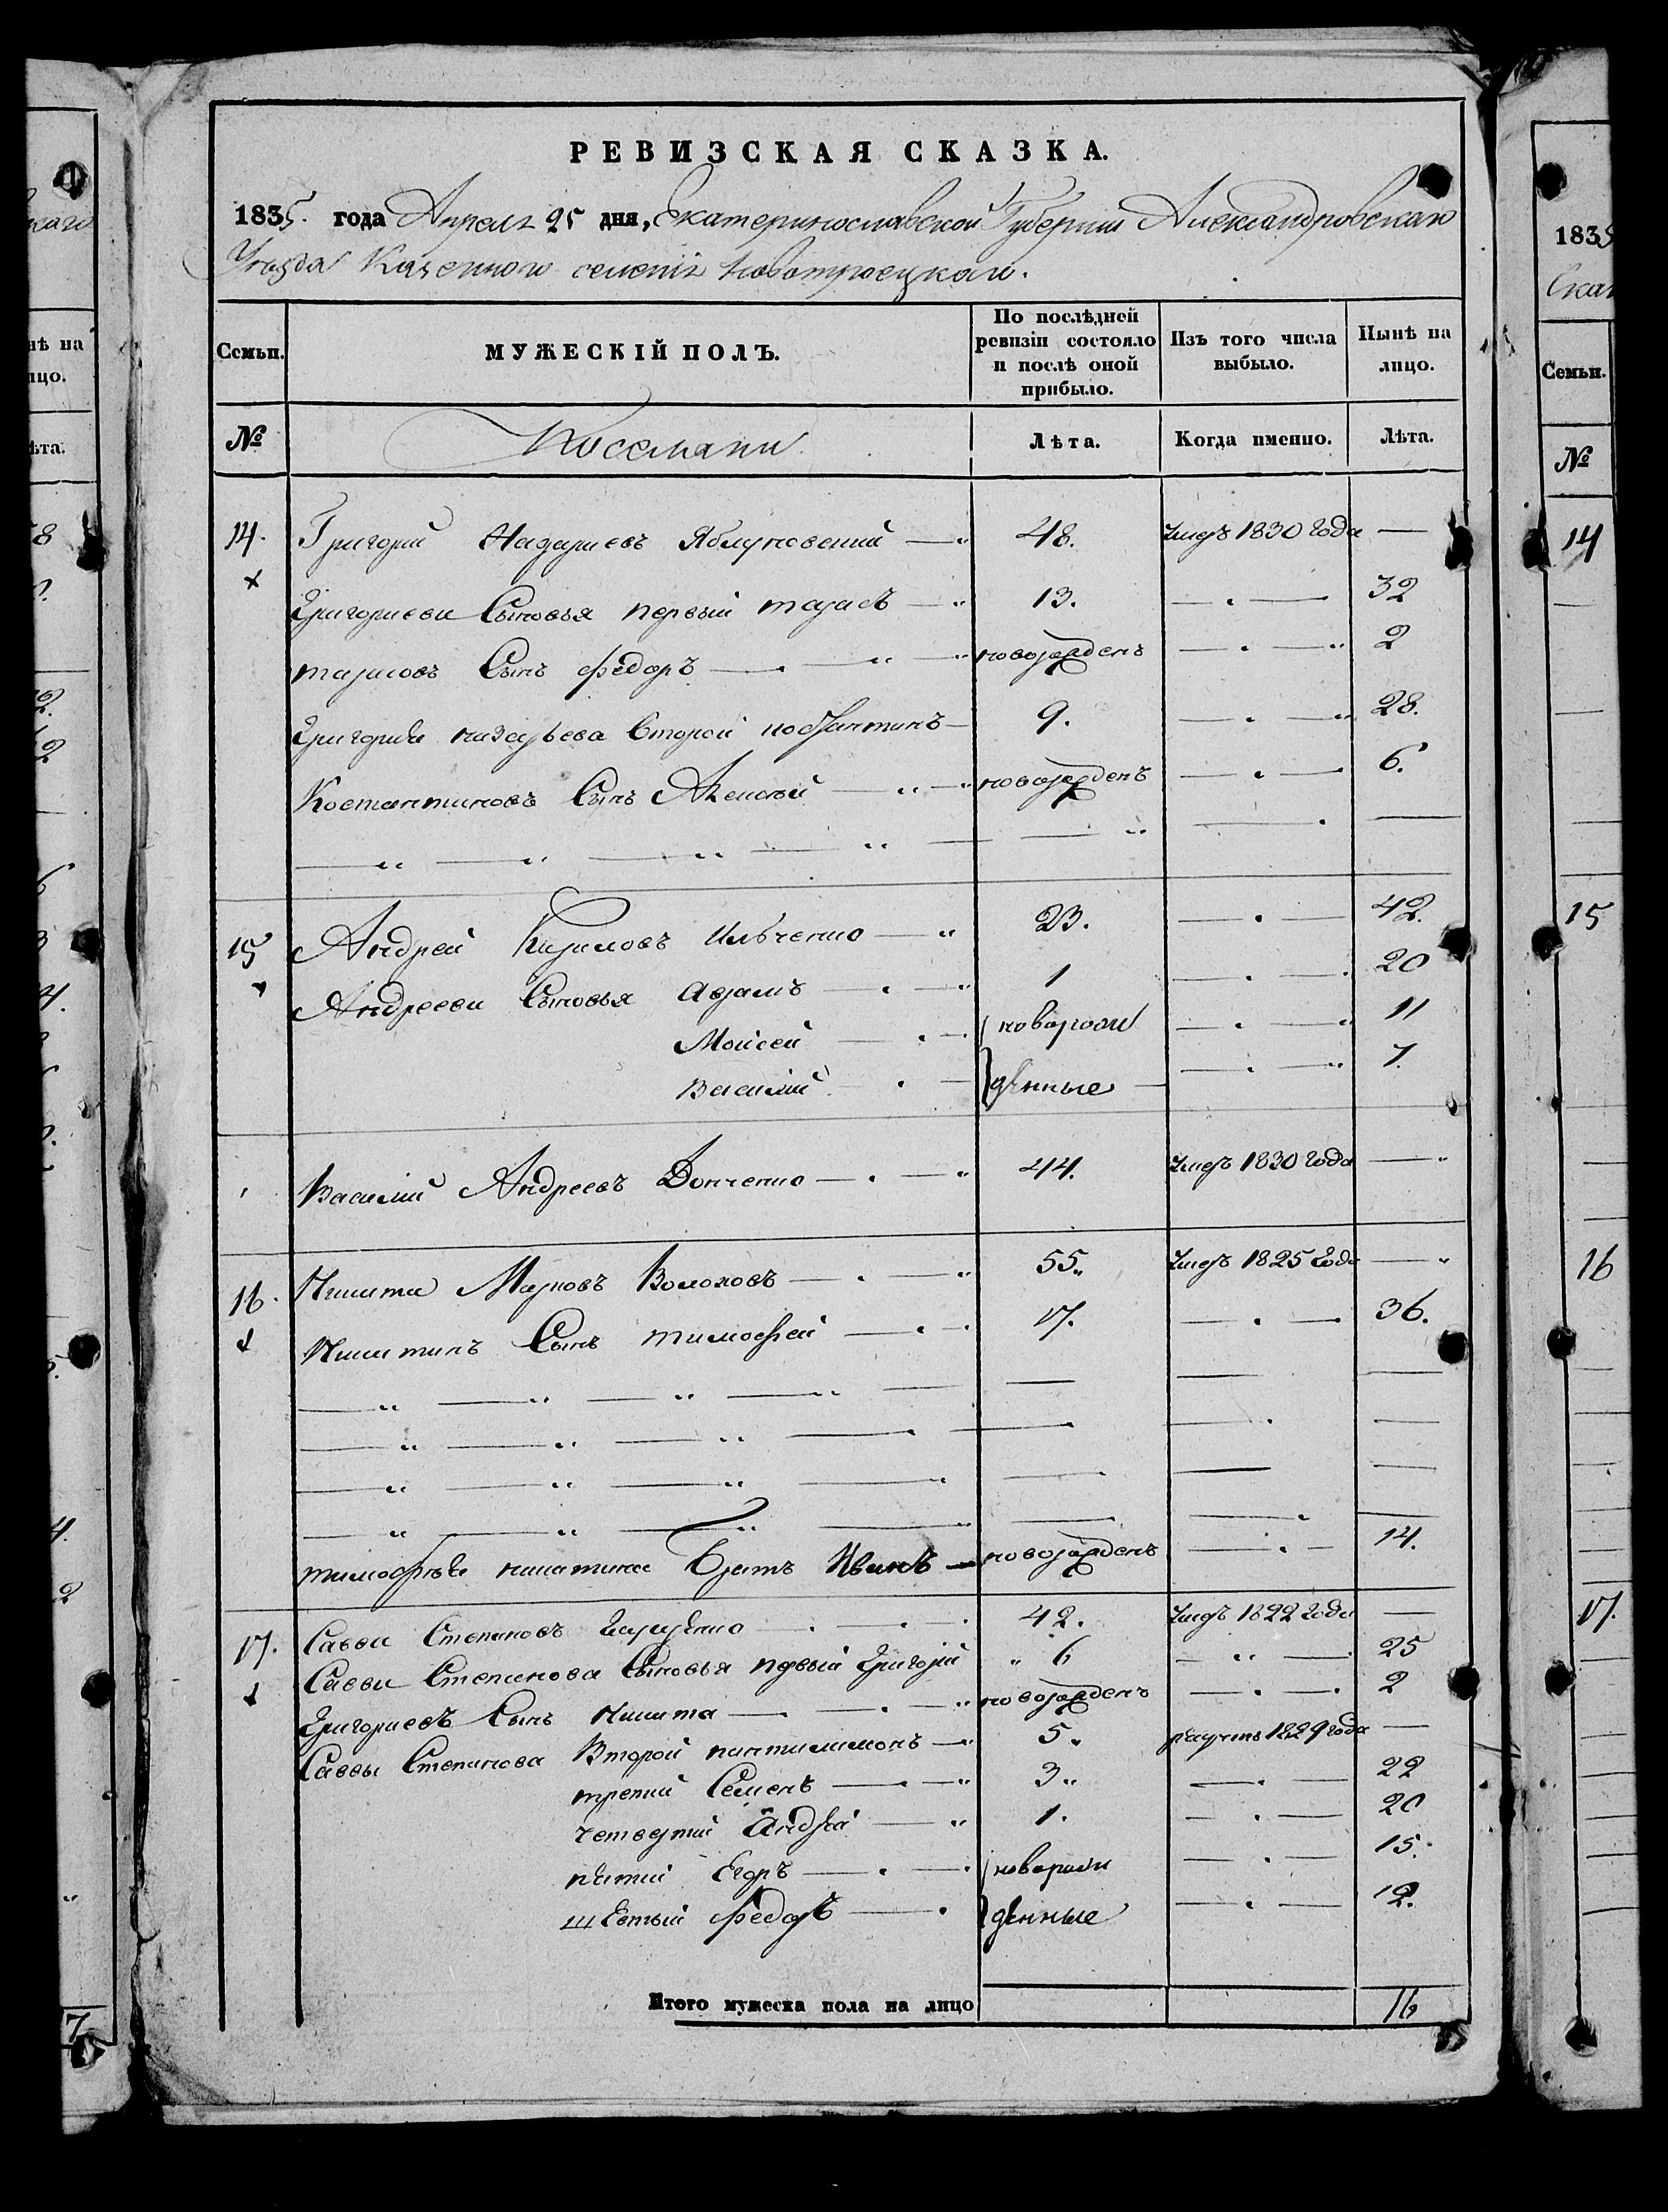 РЕВИЗСКАЯ СКАЗКА.
1835. года Апреля 25 дня, Екатеринославской Губернии Александровскаго
Уезда Казенного селенія Новотроецкаго.
Семьи. МУЖЕСКІЙ ПОЛЪ. По послѣдней ревизіи состояло и послѣ оной прибыло. Изъ того числа выбыло. Нынѣ на лицо.
№ Поселяни Лѣта. Когда именно. Лѣта.
14. Григорий Назариевъ Яблуновский 48. Умеръ 1830 года —
Григориеви Сыновья первый тарасъ 13. 32
тарасовъ Сынъ федоръ новорожденъ 2
Григория назарьева Второй костянтинъ 9. 28.
Костантиновъ Сынъ Алексей новорожденъ 6.
15 Андрей Кириловъ Ильченко 23. 42.
Андрееви Сыновья Аврамъ 1 20
Моисей новорож 11
Василий денные 7.
Василий Андреевъ Донченко 44. Умеръ 1830 года —
16. Никита Марковъ Волоховъ 55. Умеръ 1825 года —
Никитинъ Сынъ тимофей 17. 36.
тимофея никитина Братъ Иванъ новорожденъ 14.
17. Савви Степановъ 42. Умеръ 1822 года —
Савви Степанова Сыновья первый Григорій 6 25
Григориевъ Сынъ Никита новорожденъ 2
Саввы Степанова Второй пантилимонъ 5 1829 года —
третий Семенъ 3 22
четвертий Андрей 1. 20
пятий Егоръ новорож 15.
шестый федоръ денные 12.
Итого мужеска пола на лицо 16
1835
Семьи.
№
14
15
16
17.
7